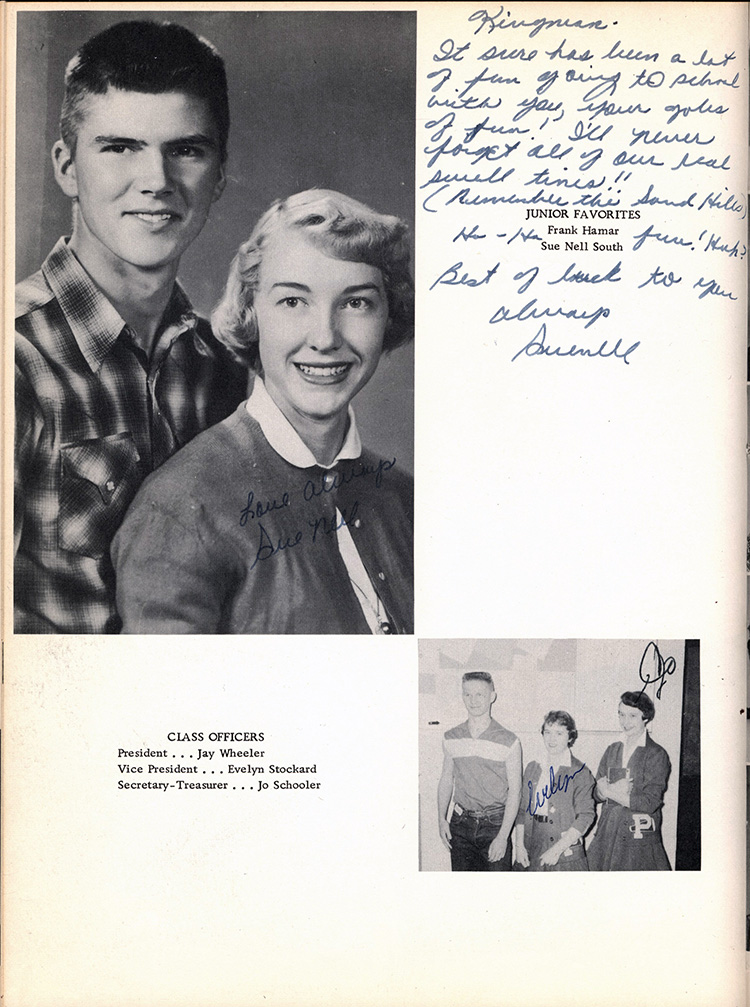 Kingman.
It sure has been a lot
of fun going to school
with you, your gobs
of fun! I'll never
forget all of our real
swell times!!
(Remember the Sand Hills)
JUNIOR FAVORITES
Frank Hamar
Sue Nell South
Ha-Ha fun! Huh?
Best of luck to you
always
Suenell
Love always
Sue Nell
Jo
Evelyn
P
CLASS OFFICERS
President . . . Jay Wheeler
Vice President . . . Evelyn Stockard
Secretary-Treasurer . . . Jo Schooler